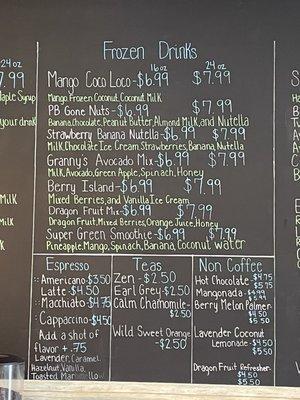 24 oz
7.99
Maple Syrup
your drink
Milk
Milk
Frozen Drinks
16 oz 24 oz
Mango Coco Loco-$6.99 $7.99
Mango Frozen Coconut, Coconut Milk
PB Gone Nuts-$6.99 $7.99
Banana, Chocolate, Peanut Butter, Almond Milk, and Nutella
Strawberry Banana Nutella-$6.99 $7.99
Milk, Chocolate Ice Cream, Strawberries, Banana, Nutella
Granny's Avocado Mix-$6.99 $7.99
Milk, Avocado, Green Apple, Spinach, Honey
Berry Island-$6.99 $7.99
Mixed Berries, and Vanilla Ice Cream
Dragon Fruit Mix-$6.99 $7.99
Dragon Fruit, Mixed Berries, Orange Juice, Honey
Super Green Smoothie-$6.99 $7.99
Pineapple, Mango, Spinach, Banana, Coconut water
Espresso
Americano-$3.50
Latte-$4.50
Macchiato-$4.75
Cappuccino-$4.50
Add a shot of
flavor + .75
Lavender, Caramel,
Hazelnut, Vanilla,
Toasted Marshmallow
Teas
Zen-$2.50
Earl Grey-$2.50
Calm Chamomile-
$2.50
Wild Sweet Orange
-$2.50
Non Coffee
Hot Chocolate-$4.75
$5.75
Mangonada-$6.99
Berry Melon Palmer-
$4.50
$5.50
Lavender Coconut
Lemonade-$4.50
$5.50
Dragon Fruit Refresher-
$4.50
$5.50